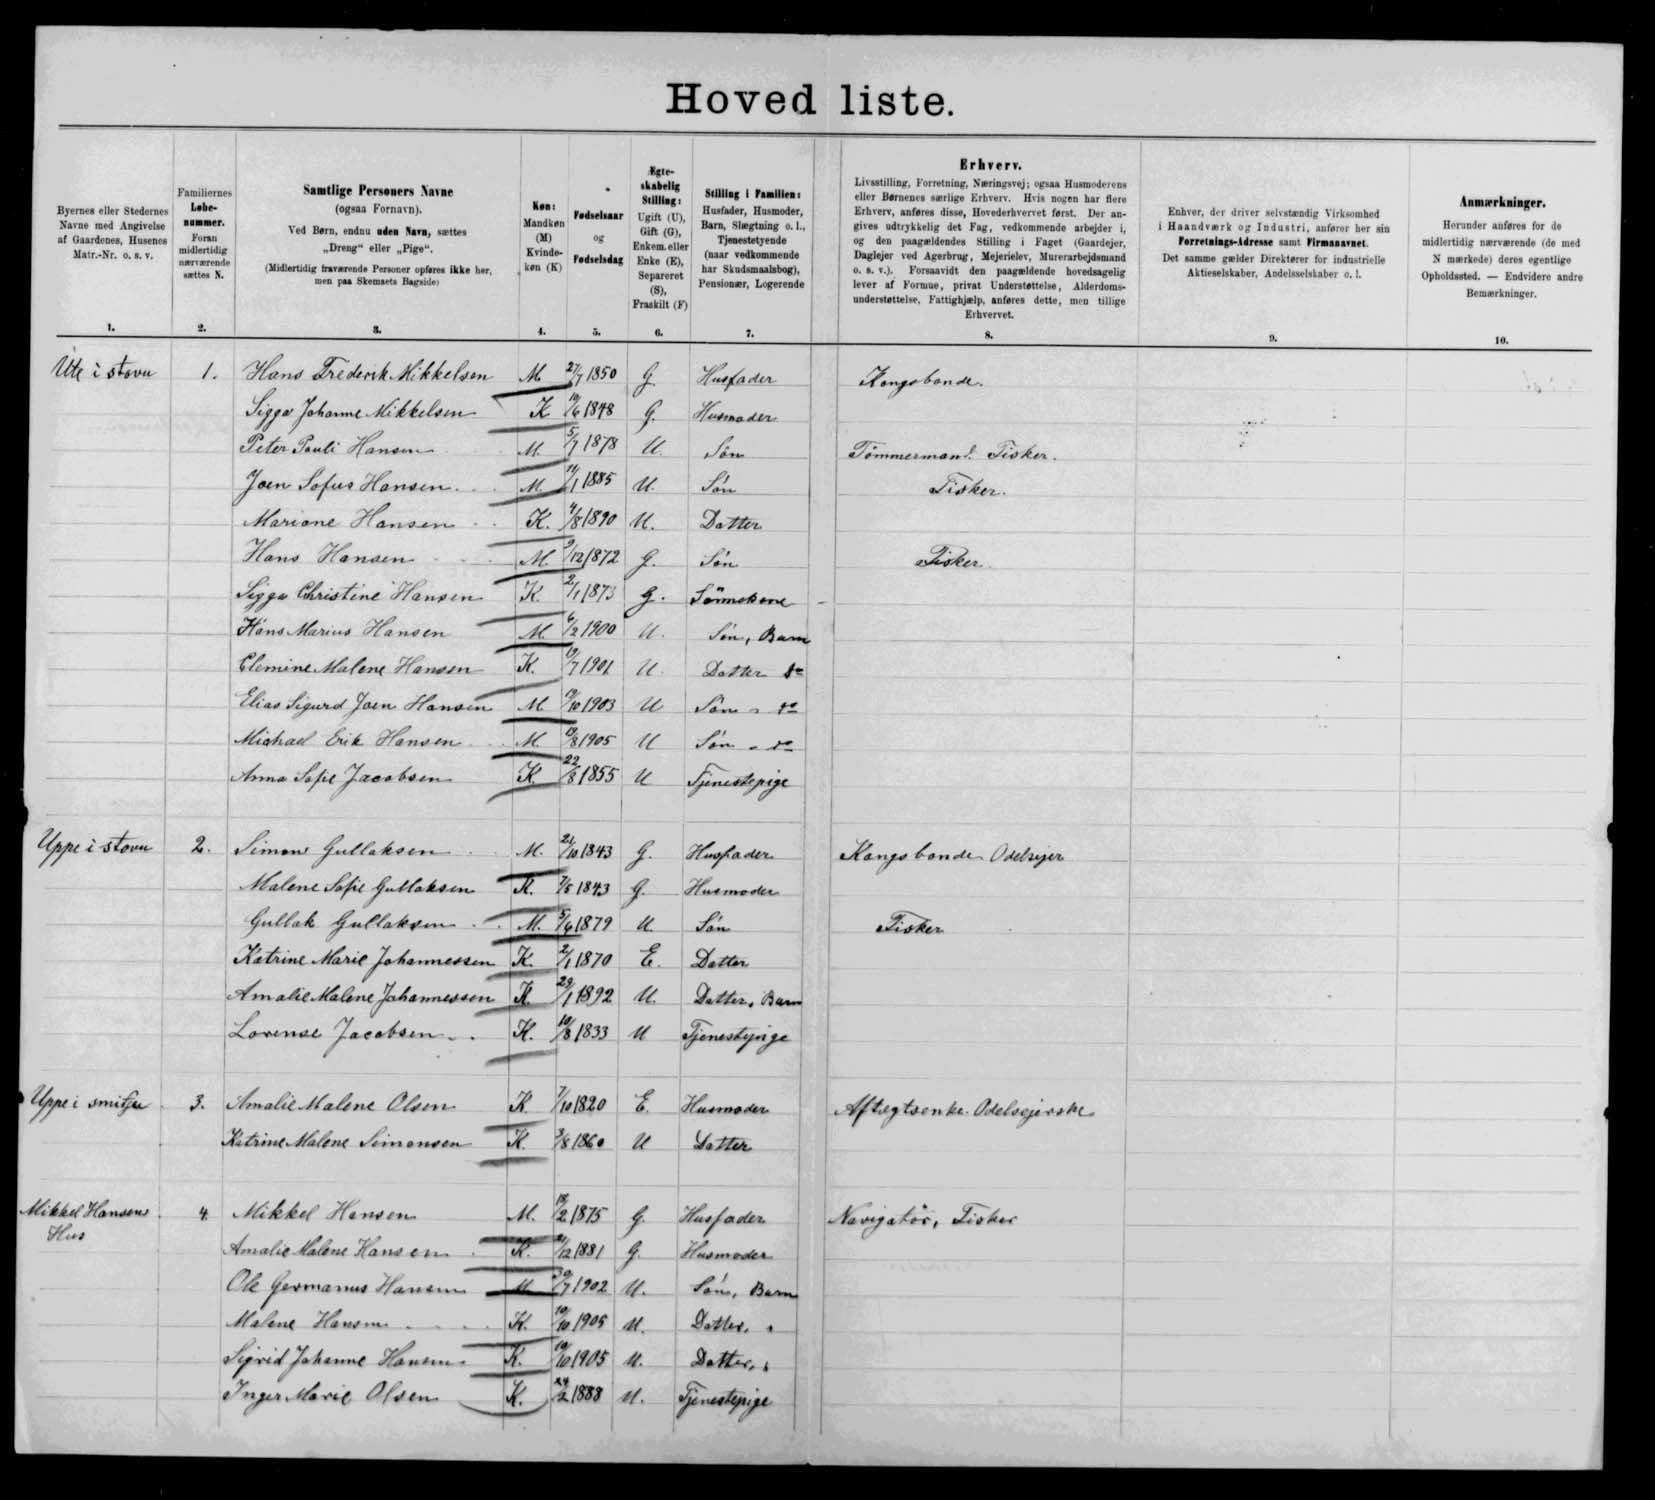 Hoved liste.
Byernes eller Stedernes
Navne med Angivelse
af Gaardenes, Husenes
Matr.-Nr. o. s. v.
1.
Familiernes
Løbe-
nummer.
Foran
midlertidig
nærværende
sættes N.
2.
Samtlige Personers Navne
(ogsaa Fornavn).
Ved Børn, endnu uden Navn, sættes
„Dreng“ eller „Pige“.
(Midlertidig fraværende Personer opføres ikke her,
men paa Skemaets Bagside)
3.
Køn:
Mandkøn
(M)
Kvinde-
køn (K)
4.
Fødselsaar
og
Fødselsdag
5.
Ægte-
skabelig
Stilling:
Ugift (U),
Gift (G),
Enkem. eller
Enke (E),
Separeret
(S),
Fraskilt (F)
6.
Stilling i Familien:
Husfader, Husmoder,
Barn, Slægtning o. l.,
Tjenestetyende
(naar vedkommende
har Skudsmaalsbog),
Pensionær, Logerende
7.
Erhverv.
Livsstilling, Forretning, Næringsvej; ogsaa Husmoderens
eller Børnenes særlige Erhverv. Hvis nogen har flere
Erhverv, anføres disse, Hovederhvervet først. Der an-
gives udtrykkelig det Fag, vedkommende arbejder i,
og den paagældendes Stilling i Faget (Gaardejer,
Daglejer ved Agerbrug, Mejerielev, Murerarbejdsmand
o. s. v.). Forsaavidt den paagældende hovedsagelig
lever af Formue, privat Understøttelse, Alderdoms-
understøttelse, Fattighjælp, anføres dette, men tillige
Erhvervet.
8.
Enhver, der driver selvstændig Virksomhed
i Haandværk og Industri, anfører her sin
Forretnings-Adresse samt Firmanavnet.
Det samme gælder Direktører for industrielle
Aktieselskaber, Andelsselskaber o. l.
9.
Anmærkninger.
Herunder anføres for de
midlertidig nærværende (de med
N mærkede) deres egentlige
Opholdssted. — Endvidere andre
Bemærkninger.
10.
Ute i stovu 1. Hans Frederik Mikkelsen M 27/7 1850 G. Husfader Kongsbonde.
Sigga Johanne Mikkelsen K 10/6 1848 G. Husmoder
Peter Pauli Hansen M. 5/7 1878 U. Søn Tømmermand. Fisker.
Joen Sofus Hansen M. 11/1 1885 U. Søn Fisker.
Mariane Hansen K. 4/8 1890 U. Datter
Hans Hansen M. 9/12 1872 G. Søn Fisker
Sigga Christine Hansen K. 2/1 1873 G. Sønnekone
Hans Marius Hansen M. 6/2 1900 U. Søn, Barn
Elemine Malene Hansen K. 19/7 1901 U. Datter do
Elias Sigurd Joen Hansen M. /10 1903 U Søn - do
Michael Erik Hansen M. 19/8 1905 U Søn - do
Anna Sofie Jacobsen K. 22/8 1855 U Tjenestepige
Uppe i stovu 2. Simon Gullaksen M. 21/10 1843 G. Husfader Kongsbonde Odelsejer
Malene Sofie Gullaksen K. 7/5 1843 G. Husmoder
Gullak Gullaksen M. 5/6 1879 U. Søn Fisker
Katrine Marie Johannessen K. 2/1 1870 E. Datter
Amalie Malene Johannessen K. 29/1 1892 U. Datter, Barn
Lorense Jacobsen K. 10/8 1833 U Tjenestepige
Uppe i smitju 3. Amalie Malene Olsen K. 7/10 1820 E. Husmoder Aftægtsenke. Odelsejerske
Katrine Malene Simonsen K. 3/8 1860 U Datter
Mikkel Hansens 4. Mikkel Hansen M. 18/2 1875 G. Husfader Navigatør, Fisker
Hus
Amalie Malene Hansen K. 21/12 1881 G. Husmoder
Ole Germanus Hansen M. 30/7 1902 U. Søn, Barn
Malene Hansen K. 10/10 1905 U. Datter, "
Sigrid Johanne Hansen K. 10/10 1905 U. Datter, "
Inger Marie Olsen K. 24/2 1888 U. Tjenestepige